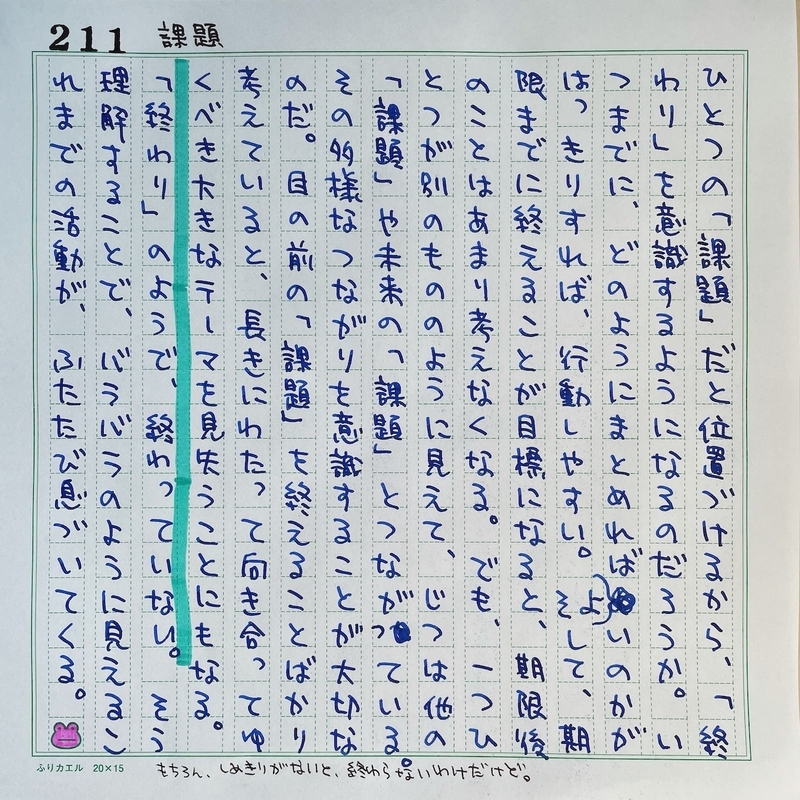 211 課題
ひとつの「課題」だと位置づけるから、「終
わり」を意識するようになるのだろうか。い
つまでに、どのようにまとめればよいのかが
はっきりすれば、行動しやすい。そして、期
限までに終えることが目標になると、期限後
のことはあまり考えなくなる。でも、一つひ
とつが別のもののように見えて、じつは他の
「課題」や未来の「課題」とつながっている。
その多様なつながりを意識することが大切な
のだ。目の前の「課題」を終えることばかり
考えていると、長きにわたって向き合ってゆ
くべき大きなテーマを見失うことにもなる。
「終わり」のようで、終わっていない。そう
理解することで、バラバラのように見えるこ
れまでの活動が、ふたたび息づいてくる。
ふりカエル 20×15
もちろん、しめきりがないと、終わらないわけだけど。